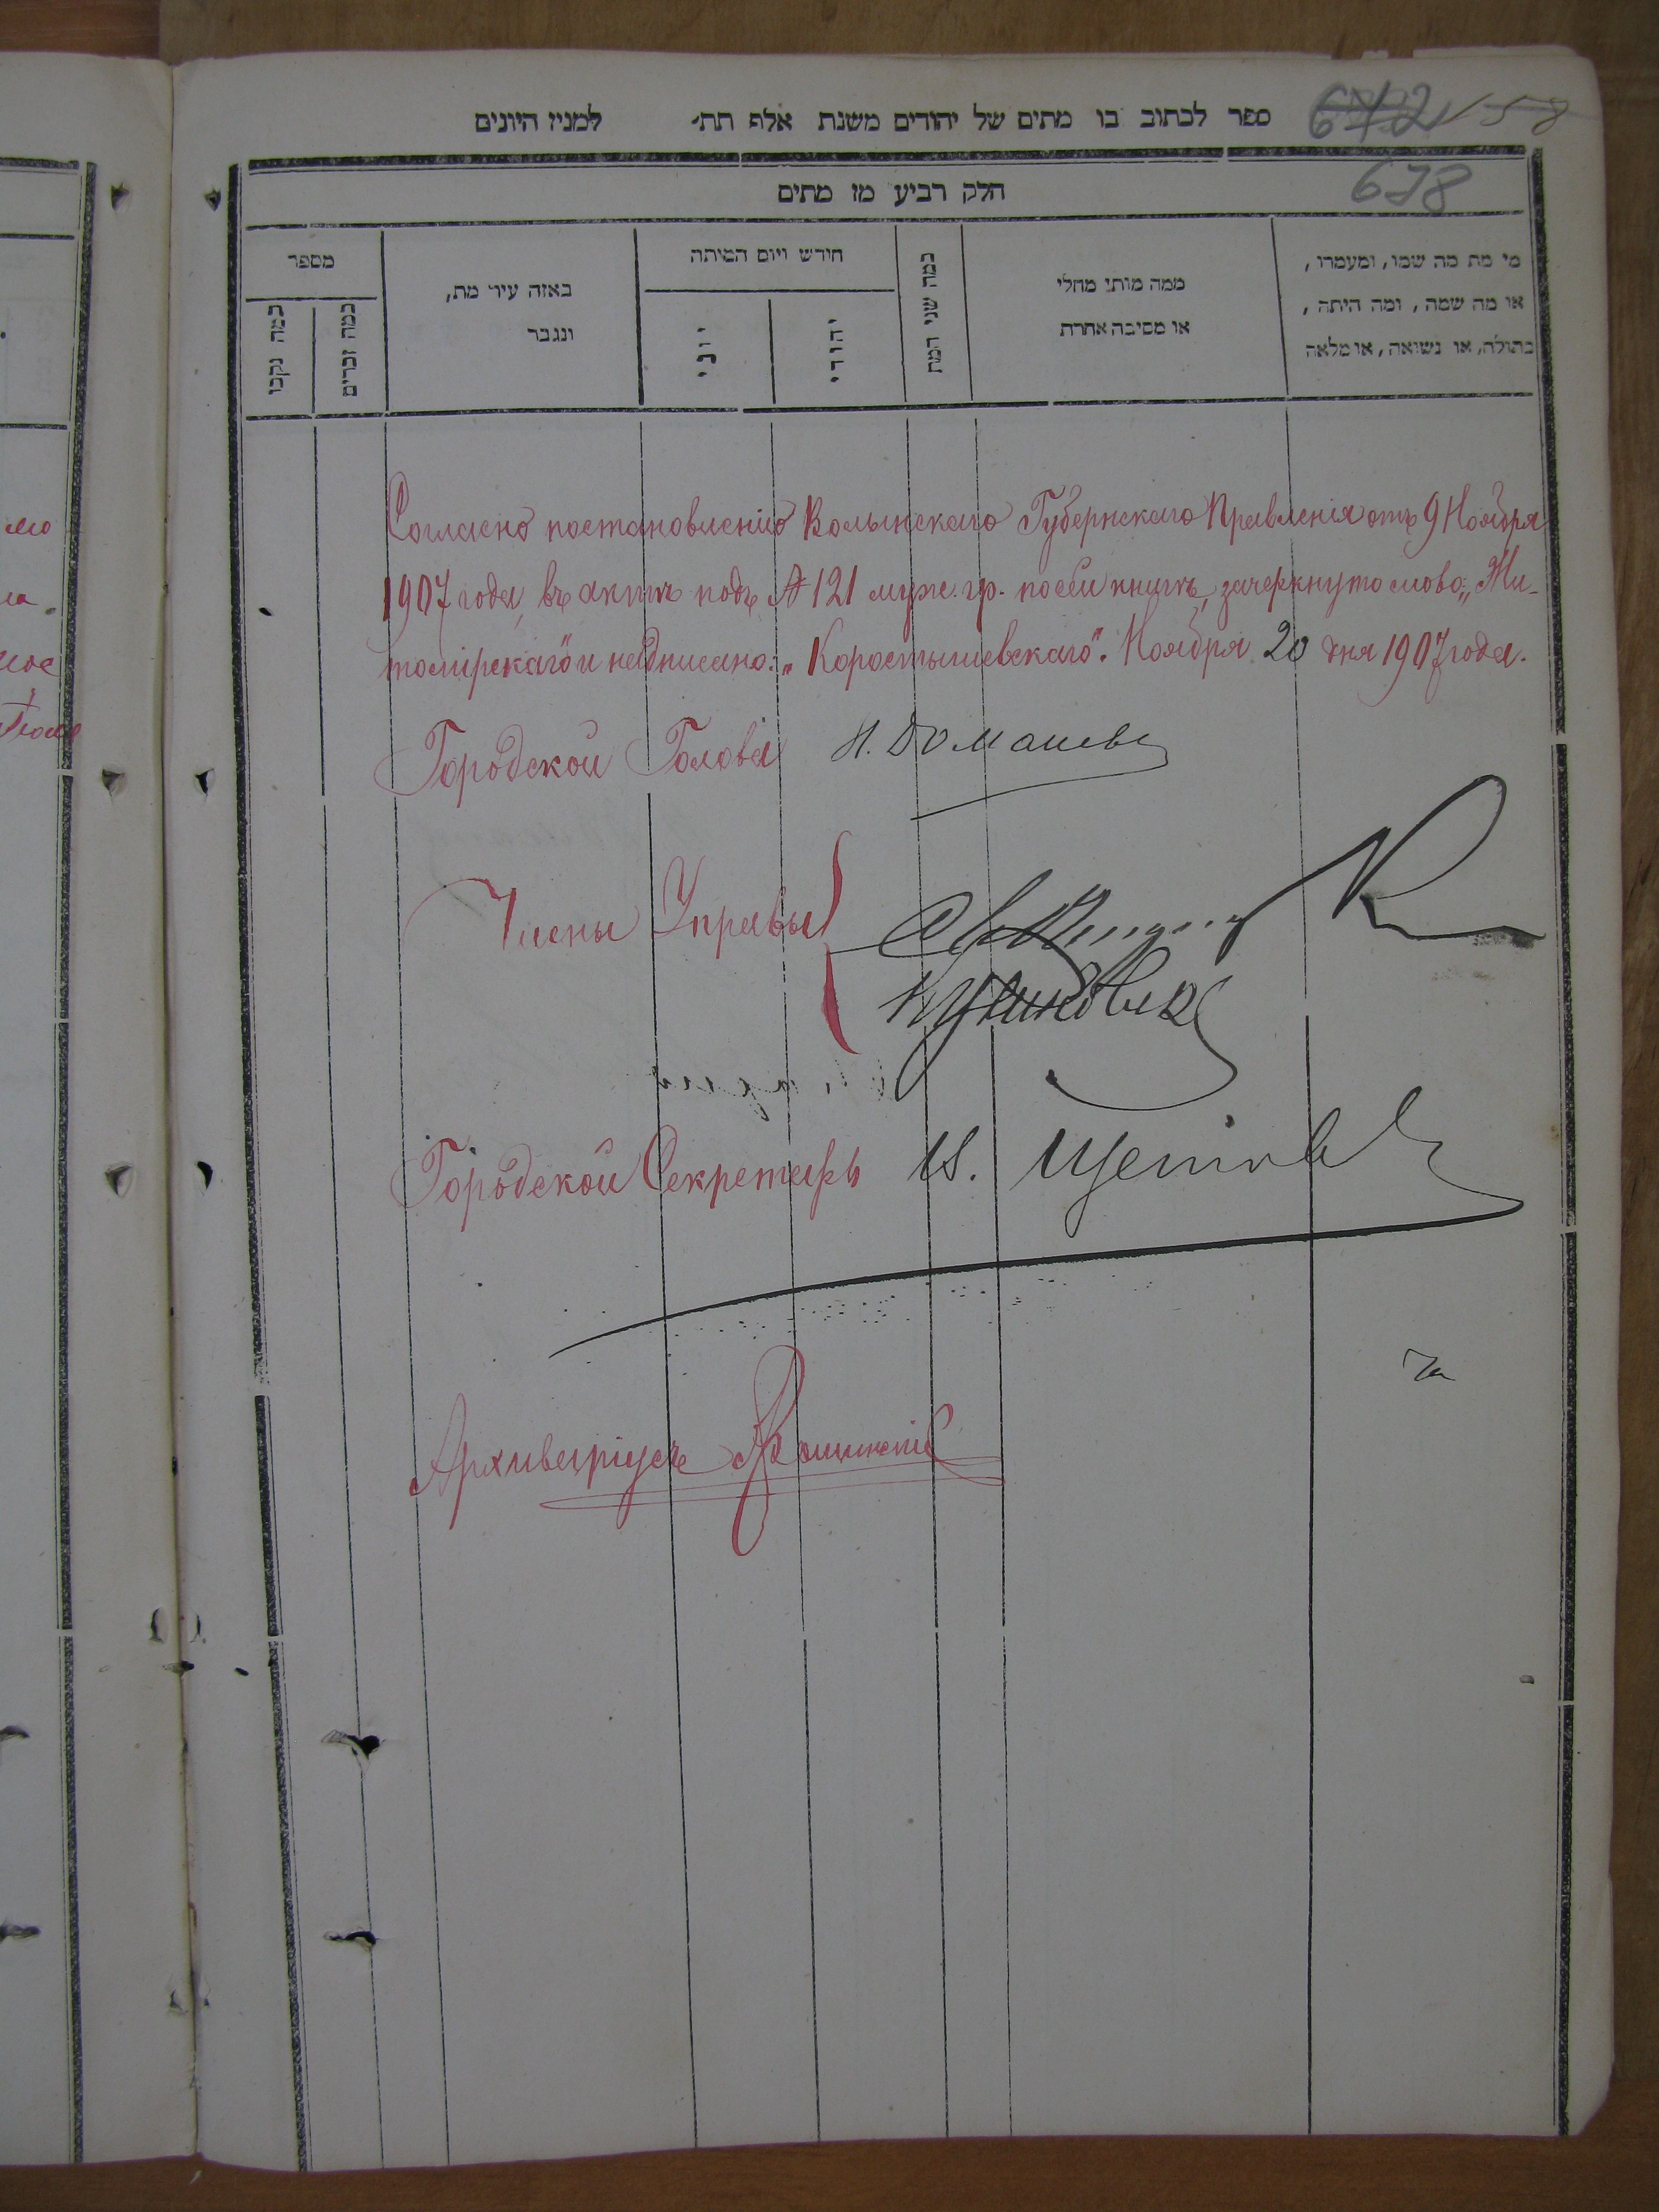 ספר לכתוב בו מתים של יהודים משנת אלף תת למנין היונים
642 158
678
חלק רביע מן מתים
מספר
כמה נקבו
כמה זכרים
באזה עיר מת,
ונגבר
חודש ויום המיתה
יוני
יהודי
כמה שני המת
ממה מותו מחלי
או מסיבה אחרת
מי מת מה שמו, ומעמדו,
או מה שמה, ומה היתה,
בתולה, או נשואה, או מלאה
Согласно постановленію Волынскаго Губернскаго Правленія отъ 9 Ноября
1907 года, въ актѣ подъ № 121 муж. гр. по сей книгѣ, зачеркнуто слово: „Жи-
томірскаго" и надписано: „Коростышевскаго". Ноября 20 дня 1907 года.
Городской Голова Н. Доманевс
Члены Управы
Городской Секретарь И.
Архиваріусъ